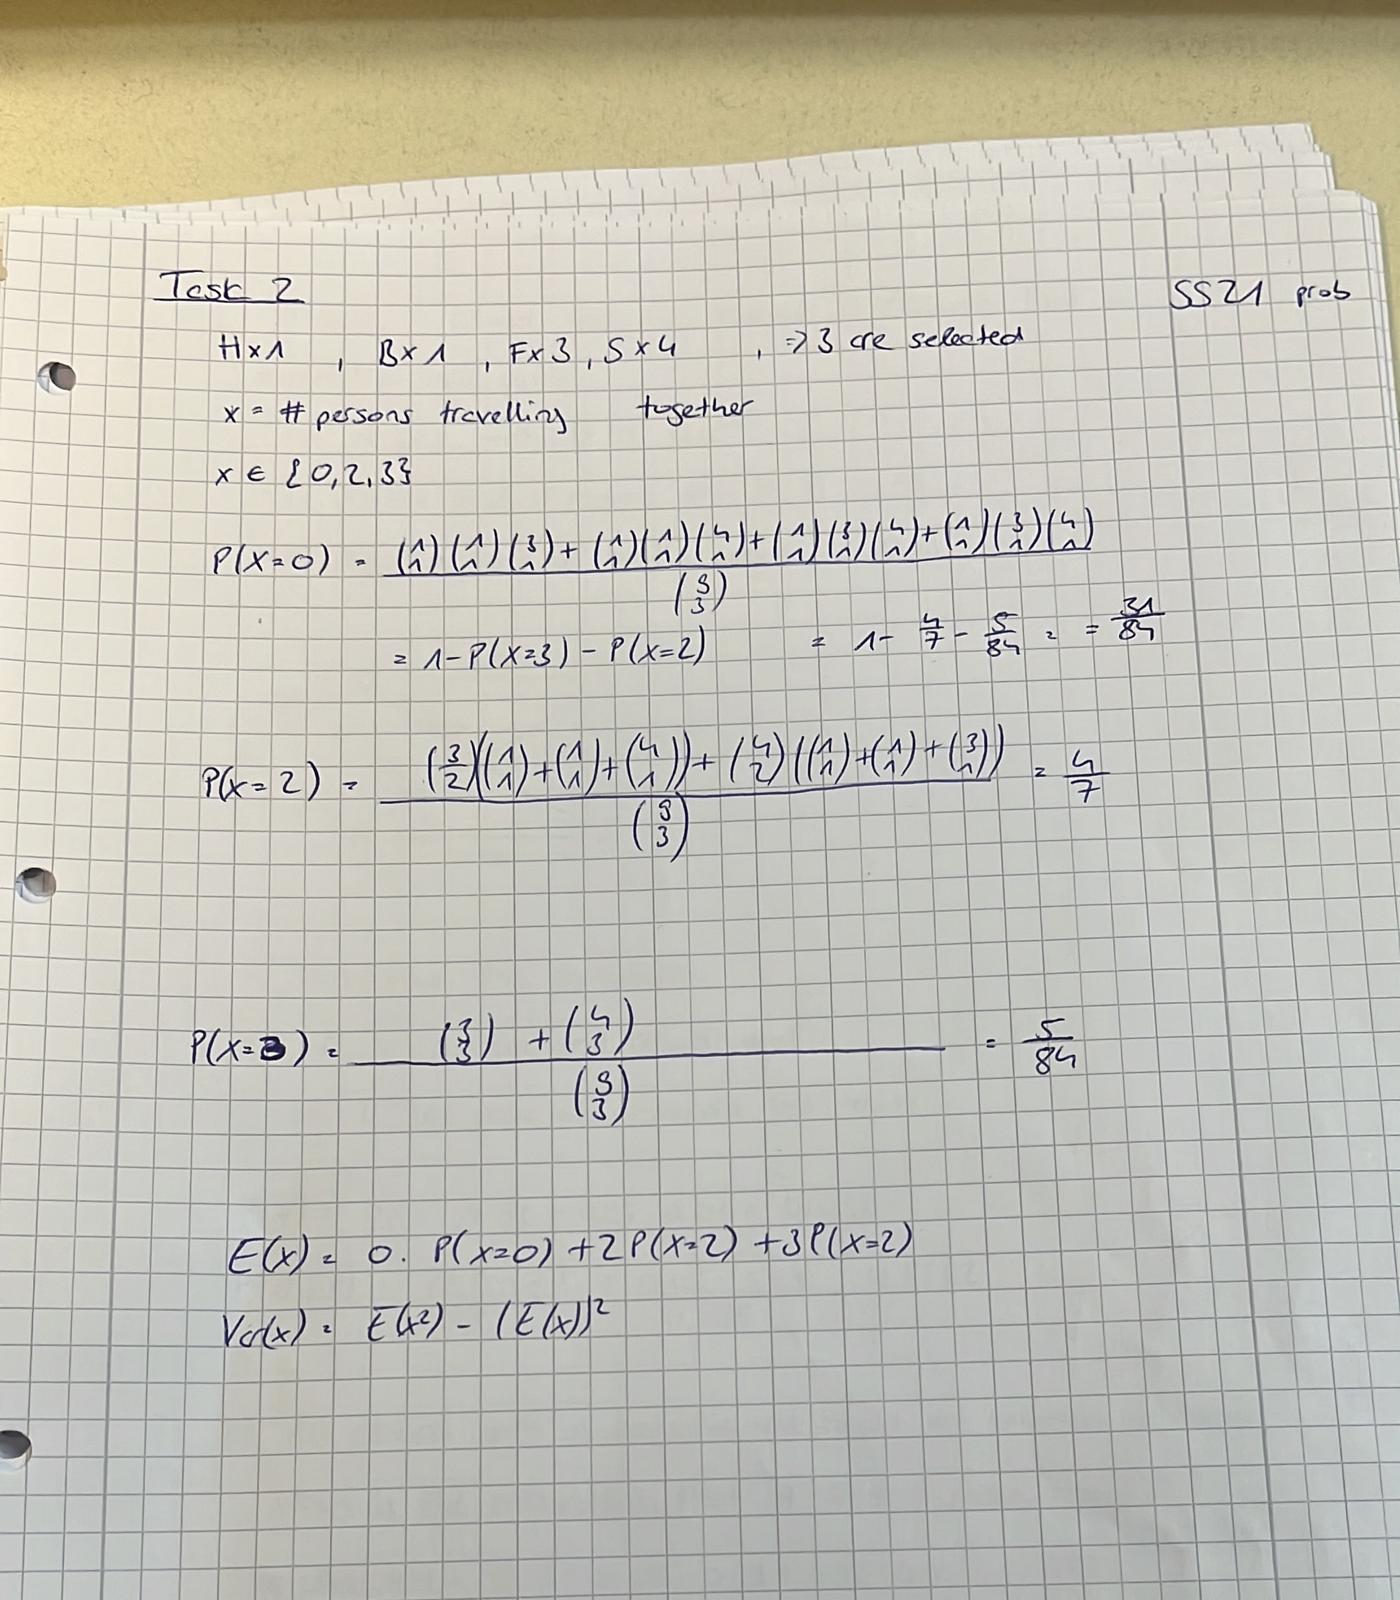 Task 2
SS21 prob
H×1 , B×1 , F×3 , S×4 , => 3 are selected
x = # persons travelling together
x ∈ {0,2,3}
P(X=0) = ((1 1)(1 1)(3 1) + (1 1)(1 1)(4 1) + (1 1)(3 1)(4 1) + (1 1)(3 1)(4 1)) / (9 3)
= 1 - P(X=3) - P(X=2) = 1 - 4/7 - 5/84 = = 31/84
P(X=2) = ((3 2)((1 1) + (1 1) + (4 1)) + (4 2)((1 1) + (1 1) + (3 1))) / (9 3) = 4/7
P(X=3) = ((3 3) + (4 3)) / (9 3) = 5/84
E(x) = 0 · P(x=0) + 2P(x=2) + 3P(x=2)
Var(x) = E(x²) - (E(x))²